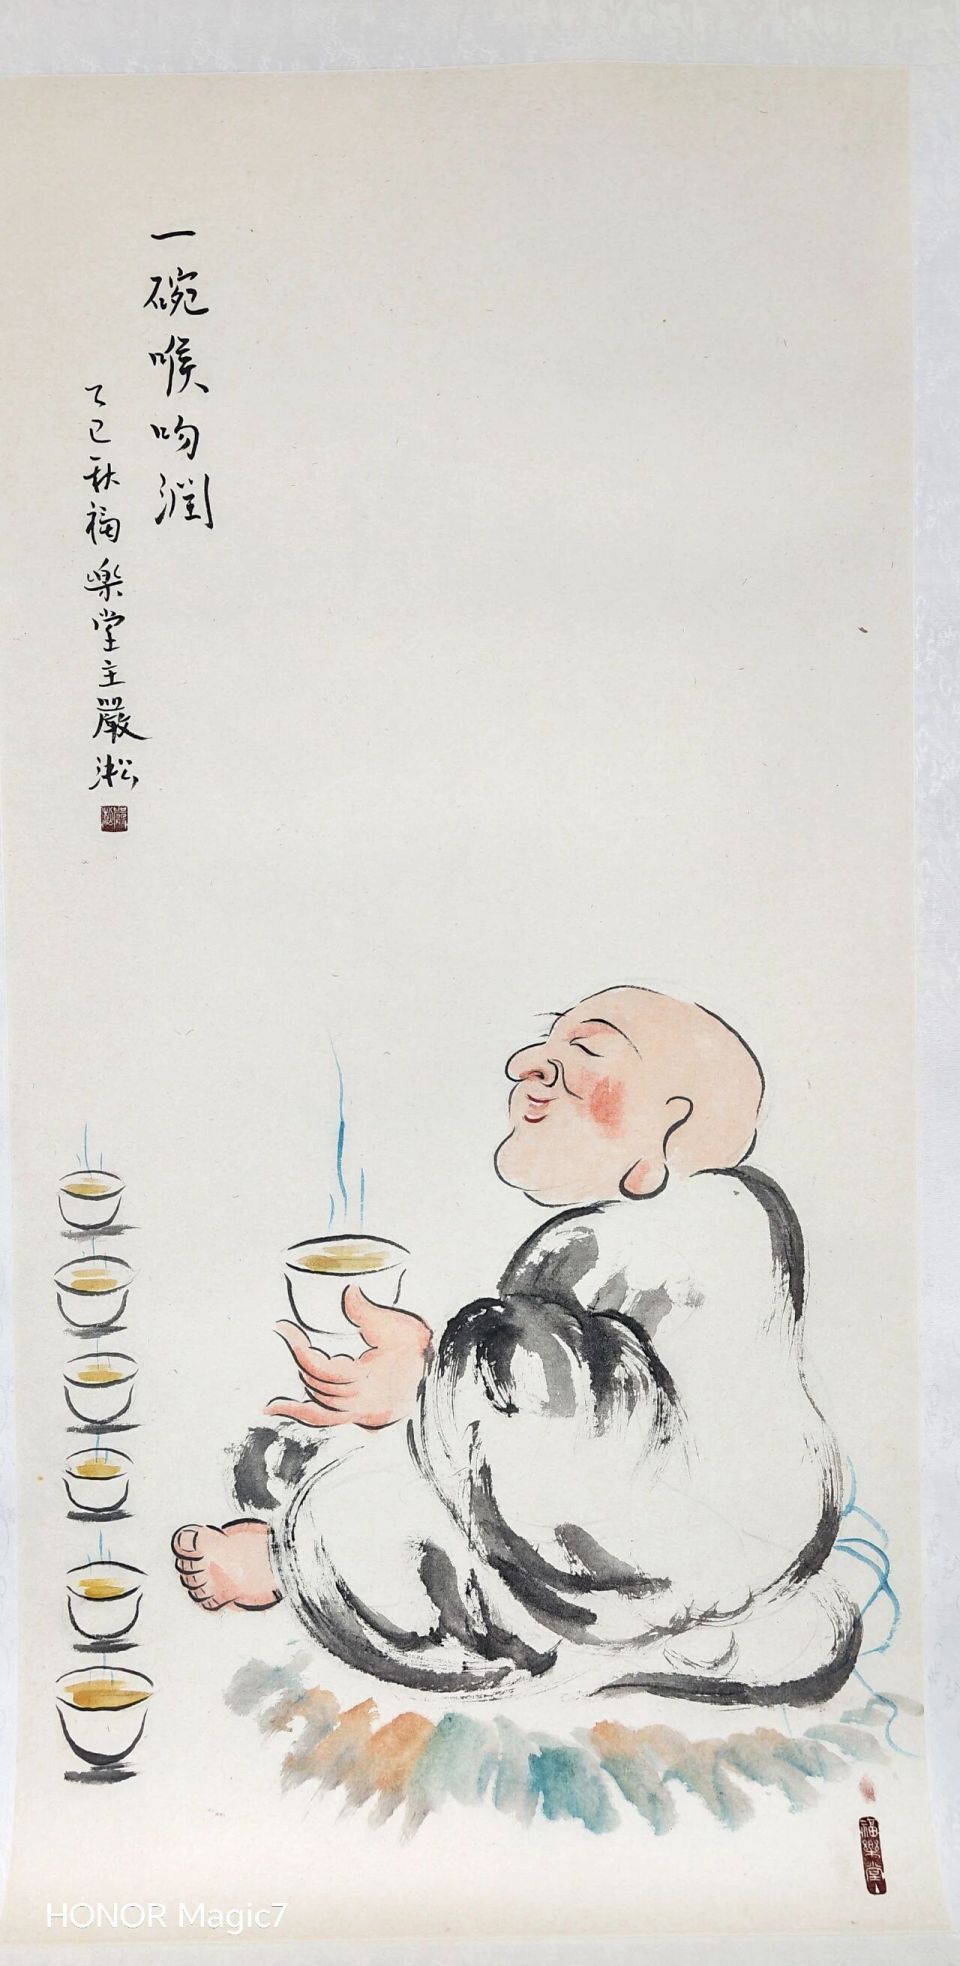 一碗喉吻潤
乙巳秋福樂堂主嚴淞
福樂堂
HONOR Magic7